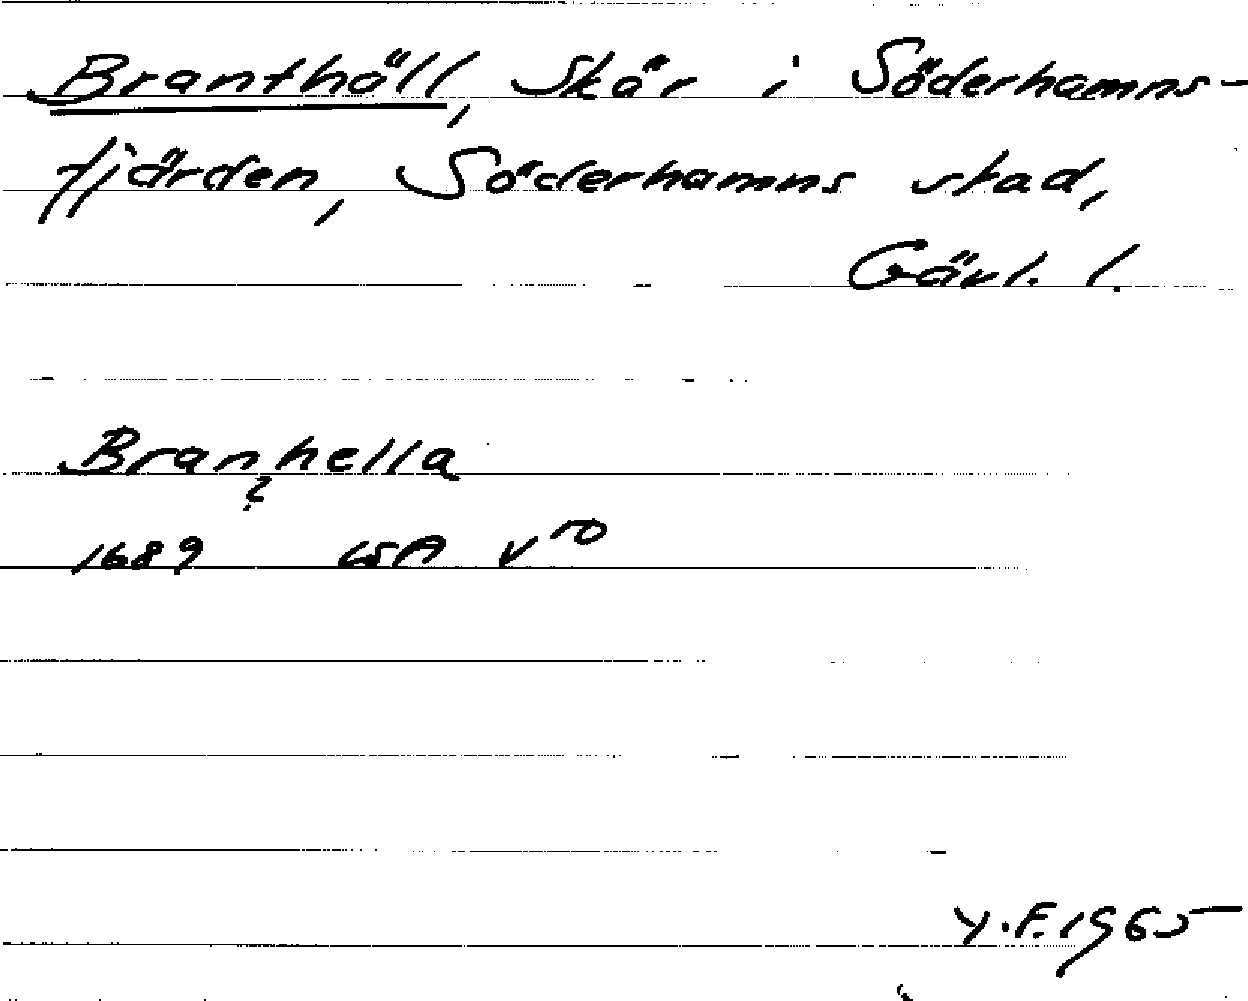 Branthäll, Skär i Söderhamns-
fjärden, Söderhamns stad,
Gävl. l.
Branhella
?
1689 LSA V 10
Y.F. 1965